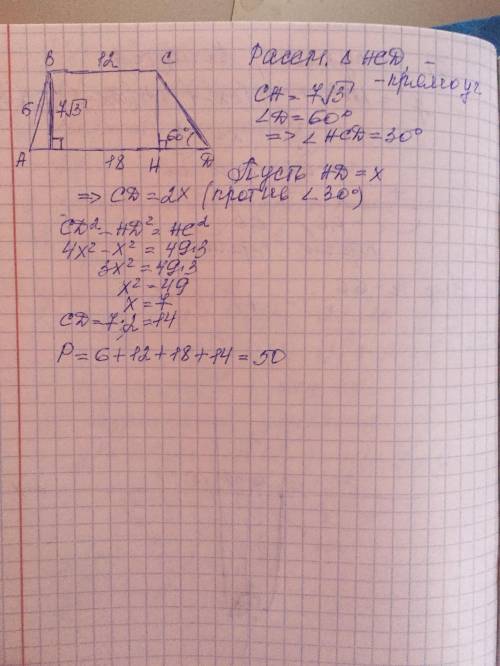 B 12 C
6 7√3 60°
A 18 H D
Рассм. Δ HCD, -
- прямоуг
CH = 7√3
∠D = 60°
=> ∠HCD = 30°
Пусть HD = x
=> CD = 2x (против ∠30°)
CD² - HD² = HC²
4x² - x² = 49·3
3x² = 49·3
x² = 49
x = 7
CD = 7·2 = 14
P = 6 + 12 + 18 + 14 = 50